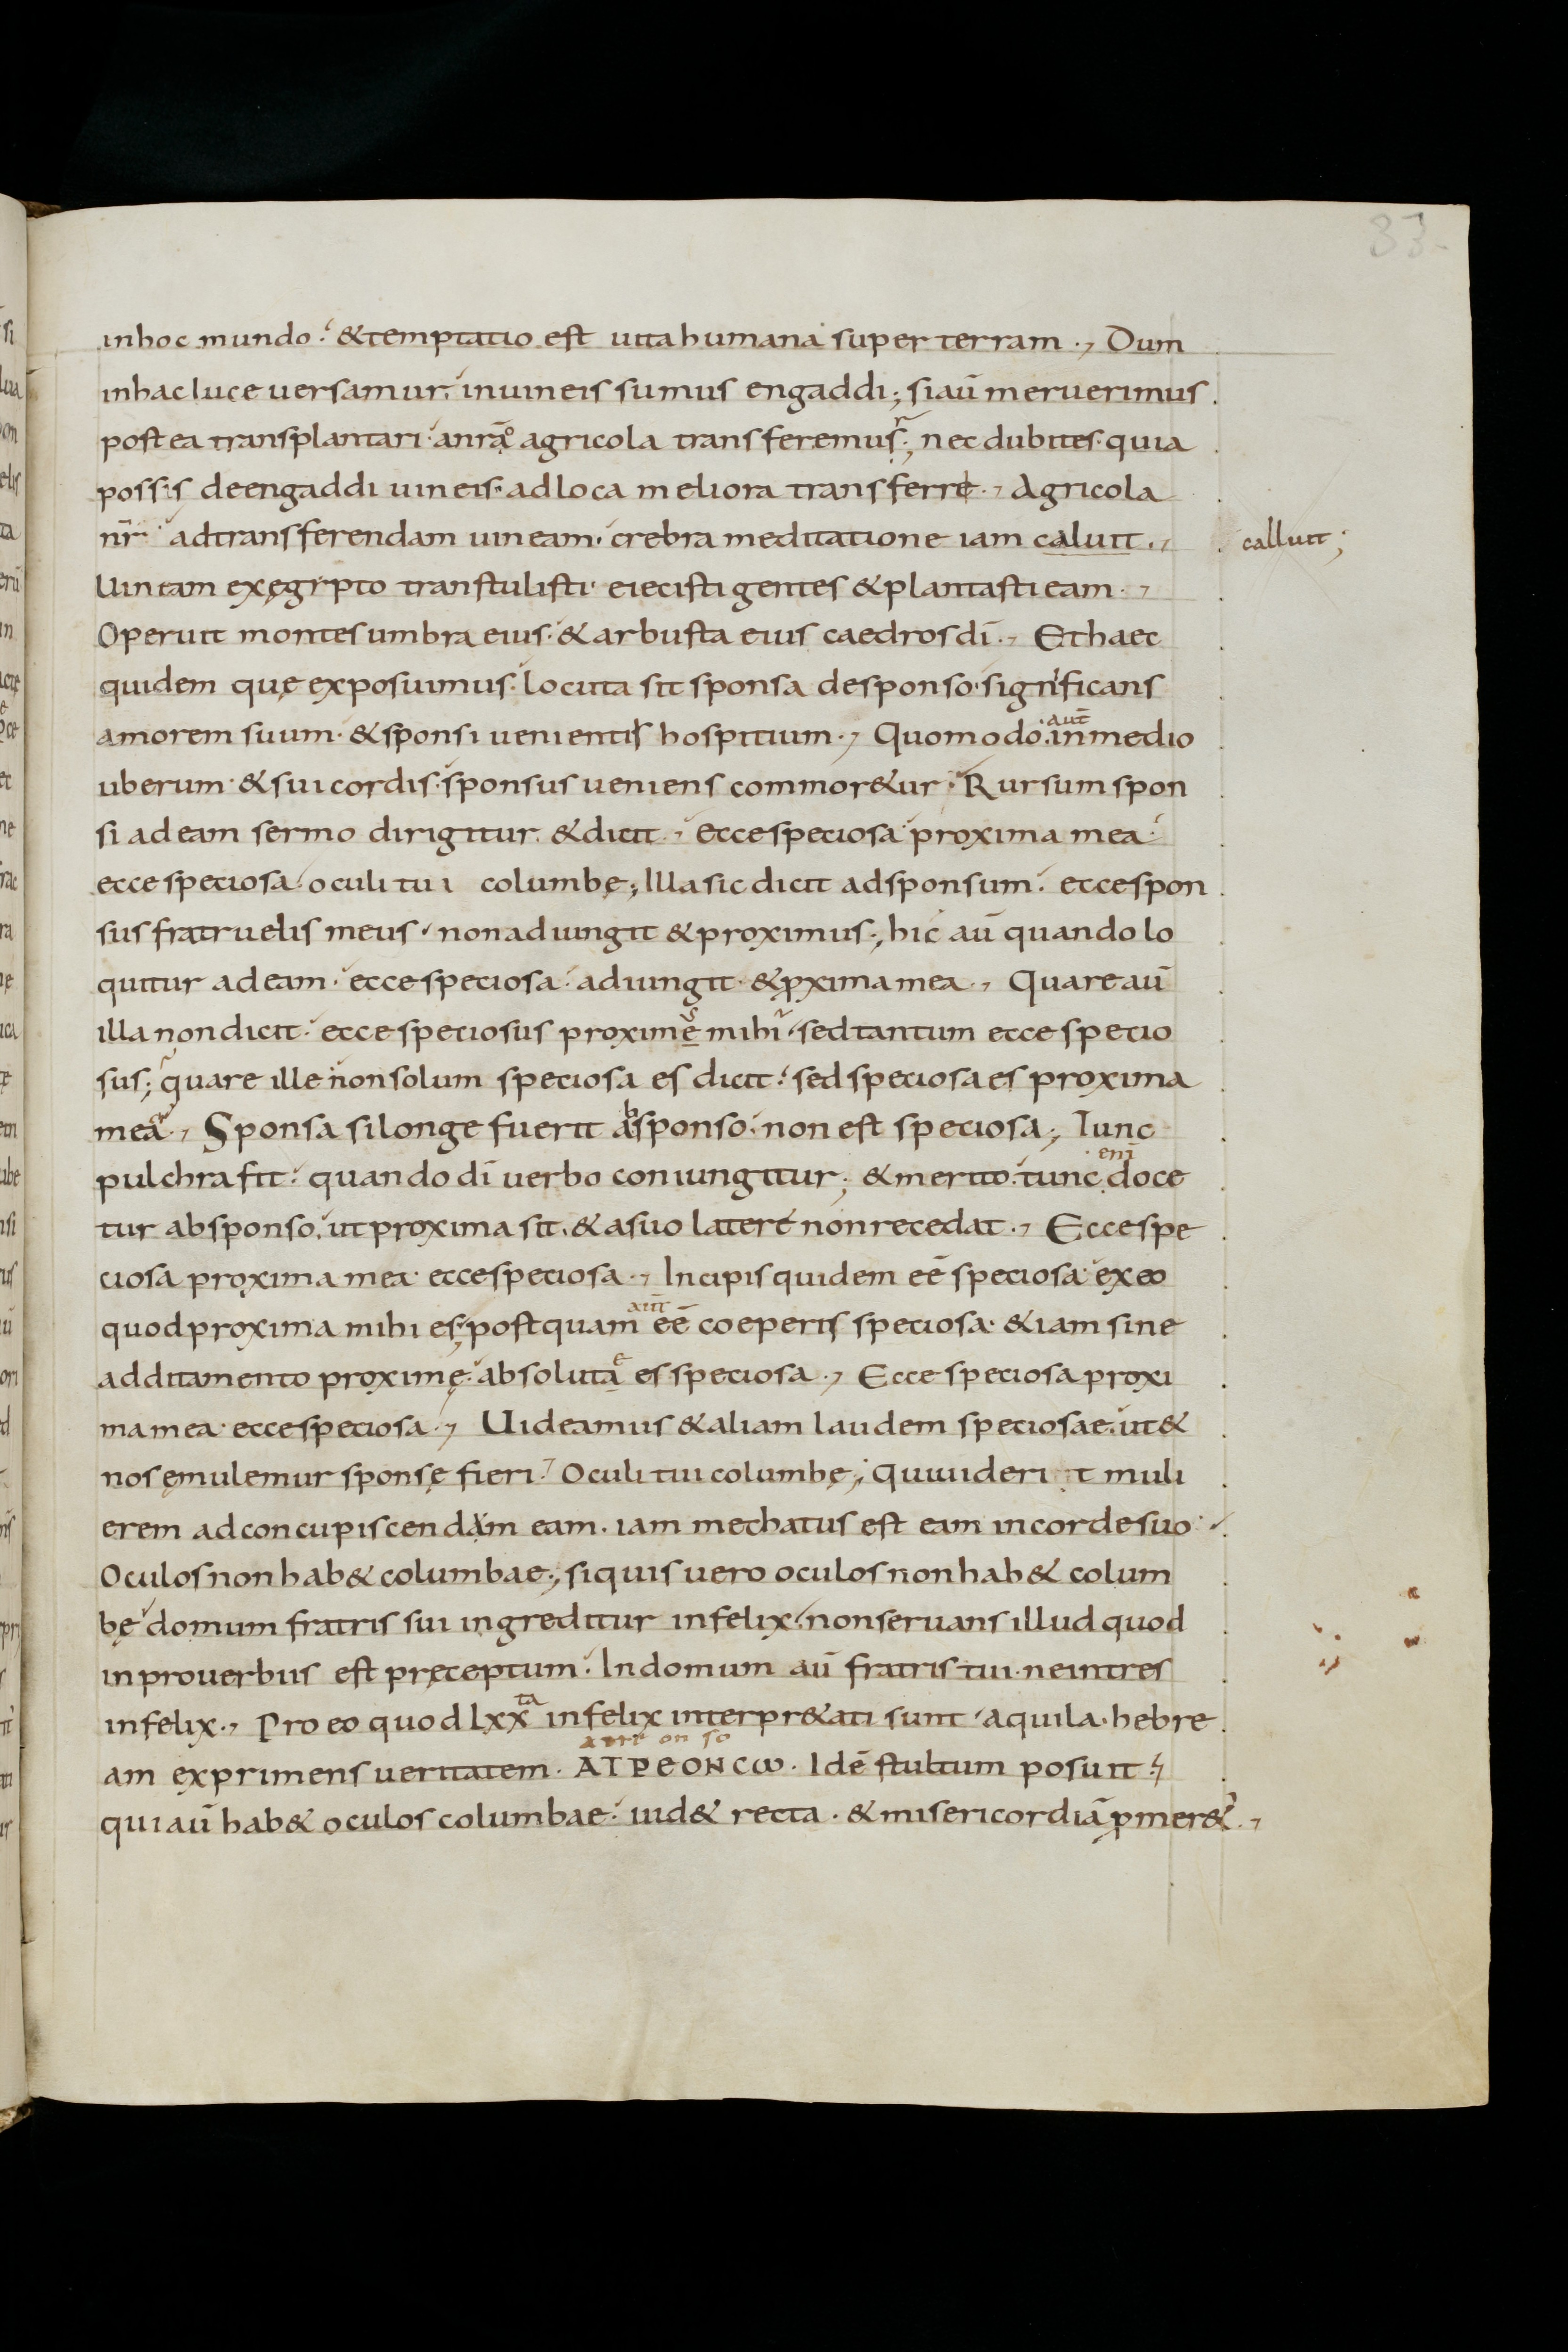 33.
inhoc mundo. &temptatio est uita humana super terram., Dum
inhac luce uersamur. inuineis sumus engaddi; siaū meruerimus
postea transplantari. anrāo agricola transferemusr; nec dubites. quia
possis deengaddi uineis. adloca meliora transferre., Agricola
nr̄ adtransferendam uineam. crebra meditatione iam caluit., calluit;
Uineam exęgipto transtulisti. eiecisti gentes &plantasti eam.,
Operuit montes umbra eius. & arbusta eius caedros dī., Et haec
quidem quę exposuimus. locuta sit sponsa desponso. significans
amorem suum. &sponsi uenientis hospitium., Quomodo. aut̄ inmedio
uberum. &sui cordis. sponsus ueniens commor&ur. Rursum spon
si adeam sermo dirigitur. &dicit., ecce speciosa proxima mea.
ecce speciosa. oculi tui columbę; Illa sic dicit adsponsum. ecce spon
sus fratruelis meus. non adiungit &proximus; hic aū quando lo
quitur adeam. ecce speciosa. adiungit. &pxima mea., Quare aū
illa non dicit. ecce speciosus proximes mihi. sed tantum ecce specio
sus; quare ille non solum speciosa es dicit. sed speciosa es proxima
mea., Sponsa si longe fuerit absponso. non est speciosa; Tunc
pulchra fit. quando dī uerbo coniungitur; &merito. tunc enī doce
tur absponso. ut proxima sit. &asuo latere non recedat., Ecce spe
ciosa proxima mea. ecce speciosa., Incipis quidem eē speciosa. exeo
quod proxima mihi es. postquam aut̄ eē coeperis speciosa. &iam sine
additamento proximę. absolutae es speciosa., Ecce speciosa proxi
ma mea. ecce speciosa., Uideamus &aliam laudem speciosae. ut&
nos ęmulemur sponsę fieri. Oculi tui columbę; Qui uideri t muli
erem adconcupiscendam eam. iam mechatus est eam incorde suo.
Oculos non hab& columbae; siquis uero oculos non hab& colum
bę domum fratris sui ingreditur infelix. non seruans illud quod
inprouerbiis est pręceptum. In domum aū fratris tui. ne intres
infelix., Pro eo quod lxxta infelix interpr&ati sunt. aquila. hebre
am exprimens ueritatem. ΑΤΡΕΟΝCω. Idē stultum posuit.
qui aū hab& oculos columbae. uid& recta. &misericordiā pmer&.,